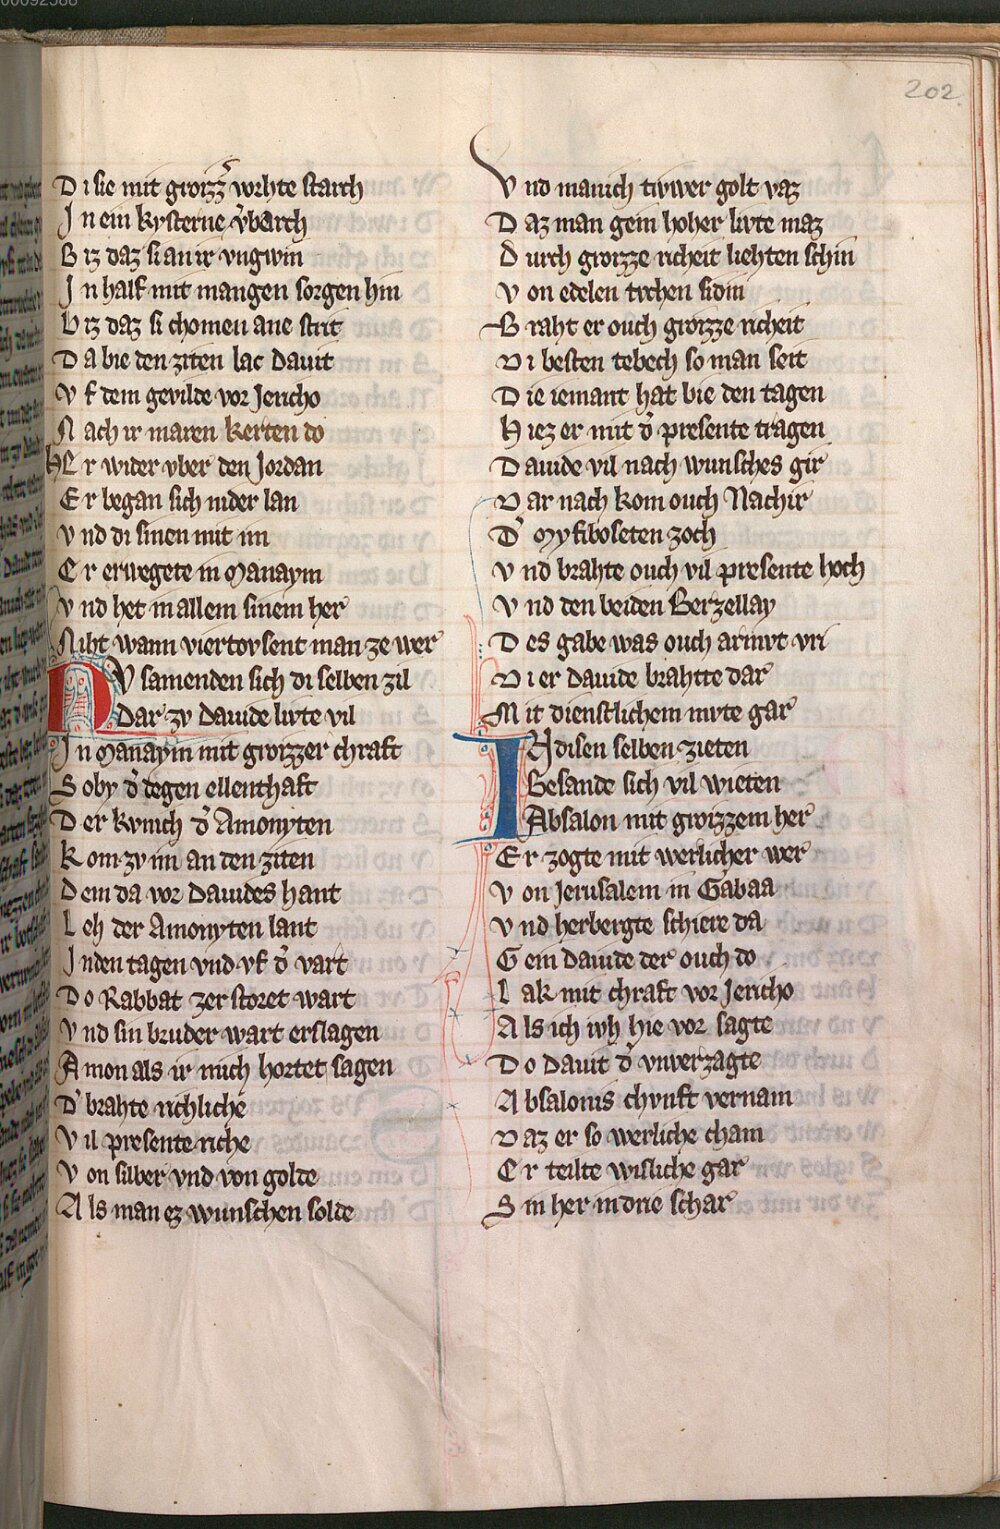 202.
Di sie mit groizz̄ vorhte starch
In ein kysterne v̄barch
Biz daz si an ir vngwin
In half mit mangen sorgen hin
Biz daz si chomen ane strit
Da bie den ziten lac Dauit
Vf dem gevilde vor Jericho
Nach ir maren kerten do
Er wider vber den Jordan
Er began sich nider lan
Vnd di sinen mit im
Er erwegete in Manaym
Vnd het in allem sinem her
Niht wann viertovsent man ze wer
NV samenden sich di selben zil
Dar zv Dauide livte vil
In Manaym mit groizzer chraft
Soby d̄ degen ellenthaft
Der kvnich d̄ Amonyten
Kom zv im an den ziten
Dem da vor Dauides hant
Leh der Amonyten lant
In den tagen vnd vf d̄ vart
Do Rabbat zerstoret wart
Vnd sin bruder wart erslagen
Amon als ir mich hortet sagen
D̄ brahte richliche
Vil presente riche
Von silber vnd von golde
Als man ez wunschen solde
Vnd manich tivwer golt vaz
Daz man gein hoher livte maz
Durch groizze richeit liehten schin
Von edelen tvchen sidin
Braht er ouch groizze richeit
Di besten tebech so man seit
Die iemant hat bie den tagen
Hiez er mit d̄ presente tragen
Dauide vil nach wunsches gir
Dar nach kom ouch Nachir
D̄ Myfiboseten zoch
Vnd brahte ouch vil presente hoch
Vnd den beiden Berzellay
Des gabe was ouch armvt vri
Di er Dauide brahtte dar
Mit dienstlichem mvte gar
IN disen selben zieten
Besande sich vil wieten
Absalon mit groizzem her
Er zogte mit werlicher wer
Von Jerusalem in Gabaa
Vnd herbergte schiere da
Gein Dauide der ouch do
Lak mit chraft vor Jericho
Als ich ivh hie vor sagte
Do Dauit d̄ vnverzagte
Absalonis chvnft vernam
Daz er so werliche cham
Er teilte wisliche gar
Sin her in drie schar